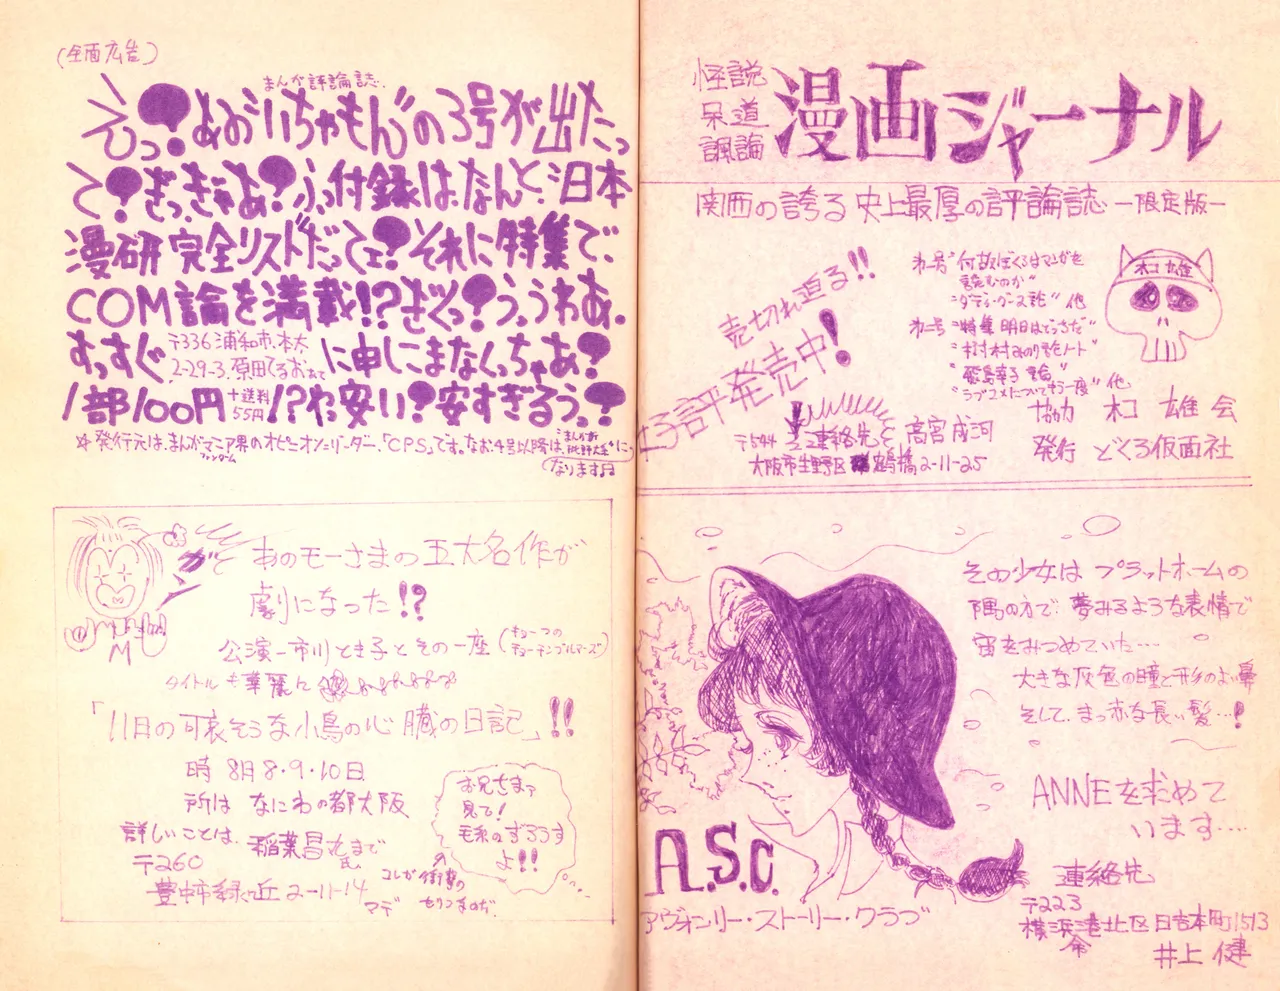 (全面広告)
まんが評論誌
えっ?あお"いちゃもん"の3号が出たっ
て?ぎっ、ぎゃあ?ふっ付録は、なんと、汨本
漫研完全リストだってェ?それに特集で、
COM論を満載!?ぎくっ?うっうわあ。
すっすぐ〒336浦和市、本太に申しこまなくっちゃあ?
2-29-3.原田てるおあて
1部100円+送料55円!?わっ安い?安すぎるうっ?
※発行元は、まんがマニア界のオピニオンリーダー、「CPS」です。なお、4号以降は、
ファンダーム
なります
ガと あのモーさまの五大名作が
劇になった!?
公演―市川とき子とその一座
タイトルも華麗に
「11日の可哀そうな小鳥の心臓の日記」!!
時 8月8・9・10日
所は なにわの都大阪
詳しいことは、稲葉昌丸まで
〒260
豊中市緑ヶ丘2-11-14
マデ
お兄ちまァ
見て!
毛糸のずろうす
よ!!
怪説
呆道
諷論
漫画ジャーナル
関西の誇る史上最厚の評論誌―限定版―
売切れ迫る!!
好評発売中!
"何故ぼくらはマンガを
読むのか"
"ダティ・グース論" 他
"特集 明日はどっちだ"
"村村みのり論ノート"
"飯島幸子論"
"ラブコメについてもう一度" 他
木コ 雄
協力 木コ 雄会
発行 どくろ仮面社
連絡先 高宮成河
〒544
大阪市生野区鶴橋2-11-25
その少女は プラットホームの
隅の方で、夢みるような表情で
宙をみつめていた…
大きな灰色の瞳と形のよい鼻
そして、まっ赤な長い髪…!
ANNEを求めて
います…
A.S.C.
アヴォンリー・ストーリー・クラブ
連絡先
〒223
横浜市港北区日吉本町1513
井上 健